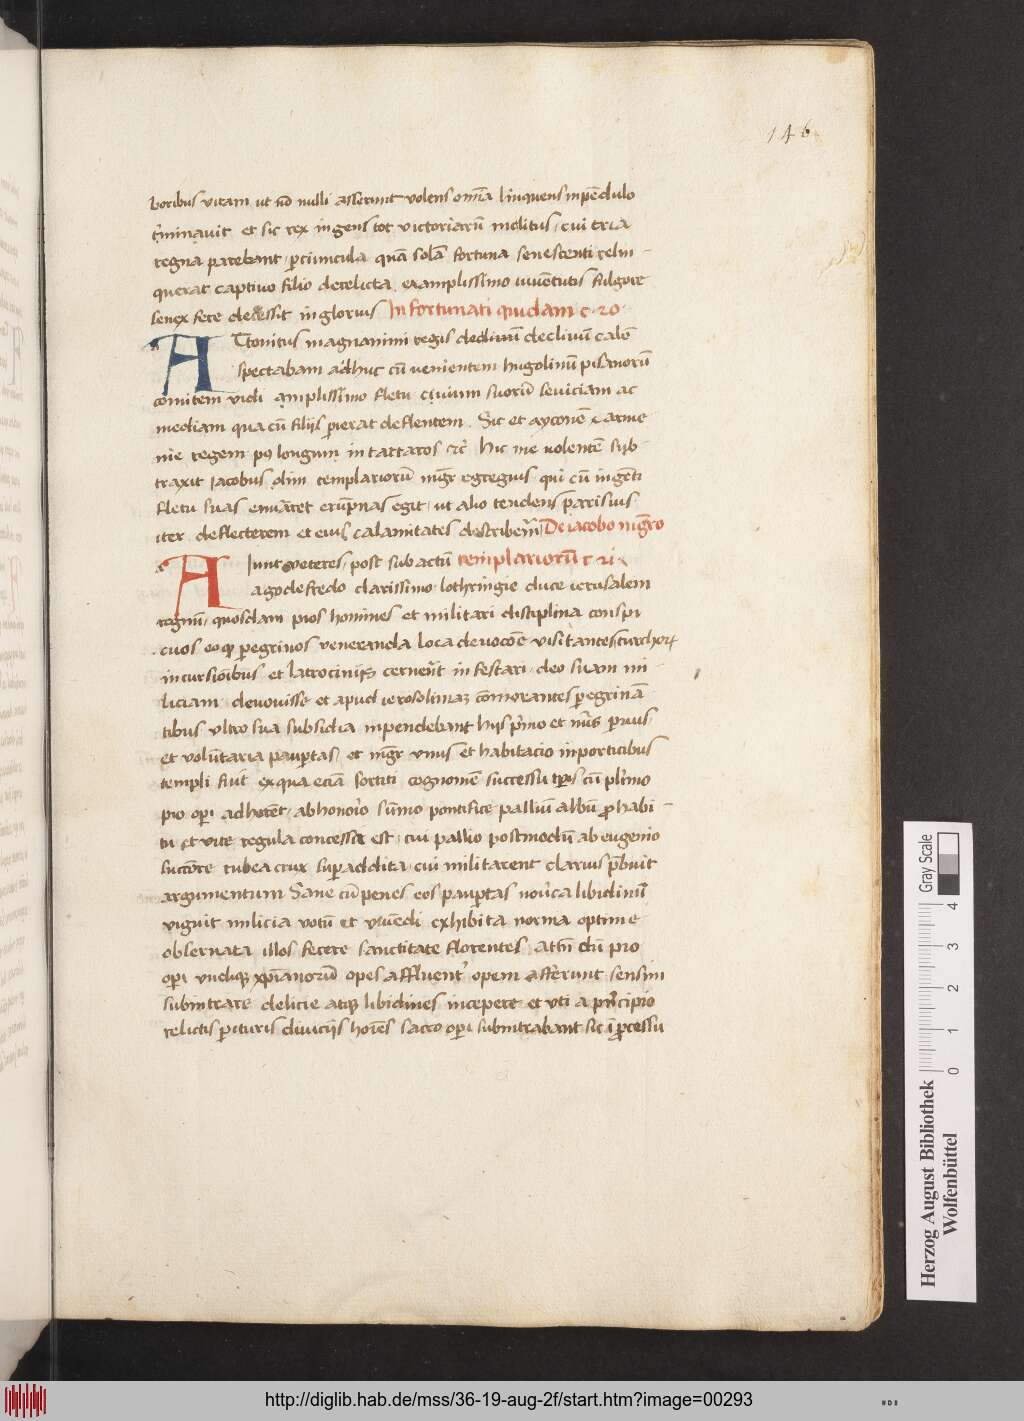 146
boribus vitam ut nō nulli asserunt volens omīa linquens inpēdulo
t'minauit et sic rex ingens tot victoriarū inclitus, cui tria
regna parebant, p̄ciuncula quā solā fortuna senescenti relin-
querat captiuo filio derelicta, examplissimo iuuētutis fulgore
senex fere decessit inglorius Infortunati quidam c. 20.
ATtonitus magnanimi regis decliuū decliuū calō
spectabam adhuc cū venientem hugolinū pisanorū
comitem vidi amplissimo fletu ciuium suorū seuiciam ac
mediam qua cū filijs pierat deflentem. Sic et ayconē armē
nie regem longum in tartaros Hic me uolentē sub-
traxit Jacobus olim templariorū mgr̄ egregius qui cū ingēti
fletu suas enarret erūpnas egit, ut alio tendens parisius
iter deflecterem et eius calamitates describerē De iacobo mgr̄o
AJunt veteres, post subactū templariorū c. 21
a godefredo clarissimo lothringie duce ierusalem
regnū, quosdam pios homines et militari disciplina conspi
cuos eoq peregrinos veneranda loca deuocōe visitantes turchor
incursiōibus et latrocinijs cernerēt infestari deo suam mi-
liciam deuouisse et apud ierosolimaz cōmorantes pegrinā
tibus vltro sua subsidia inpendebant hijs p̄mo et nr̄us paruus
et volūtaria paup̄tas, et mgr̄ vnus et habitacio in porticibus
templi fuit ex qua eciā sortiti cognomē successu tp̄is cū plīmo
pio op̄i adhorēt, ab honoīo sūmo pontifice palliū albū pro habi-
tu et vite regula concessa est, cui pallio postmodū ab eugenio
succ̄ore rubea crux sup̄addita, cui militarent clarius p̄buit
argumentum Sane cū penes eos paup̄tas nouīca libidinū
viguit milicia votū et viuēdi exhibita norma optime
obseruata illos fecere sanctitate florentes attn̄ dū pio
op̄i vndiqz xp̄ianorū opes affluent' opem afferunt sensim
subintrare delicie atqz libidines incepere et vti a p̄ncipio
relictis p̄ituris diuicijs hoīes sacro op̄i subintrabant sic ī p̄cessu
Gray Scale
0 1 2 3 4
Herzog August Bibliothek
Wolfenbüttel
http://diglib.hab.de/mss/36-19-aug-2f/start.htm?image=00293